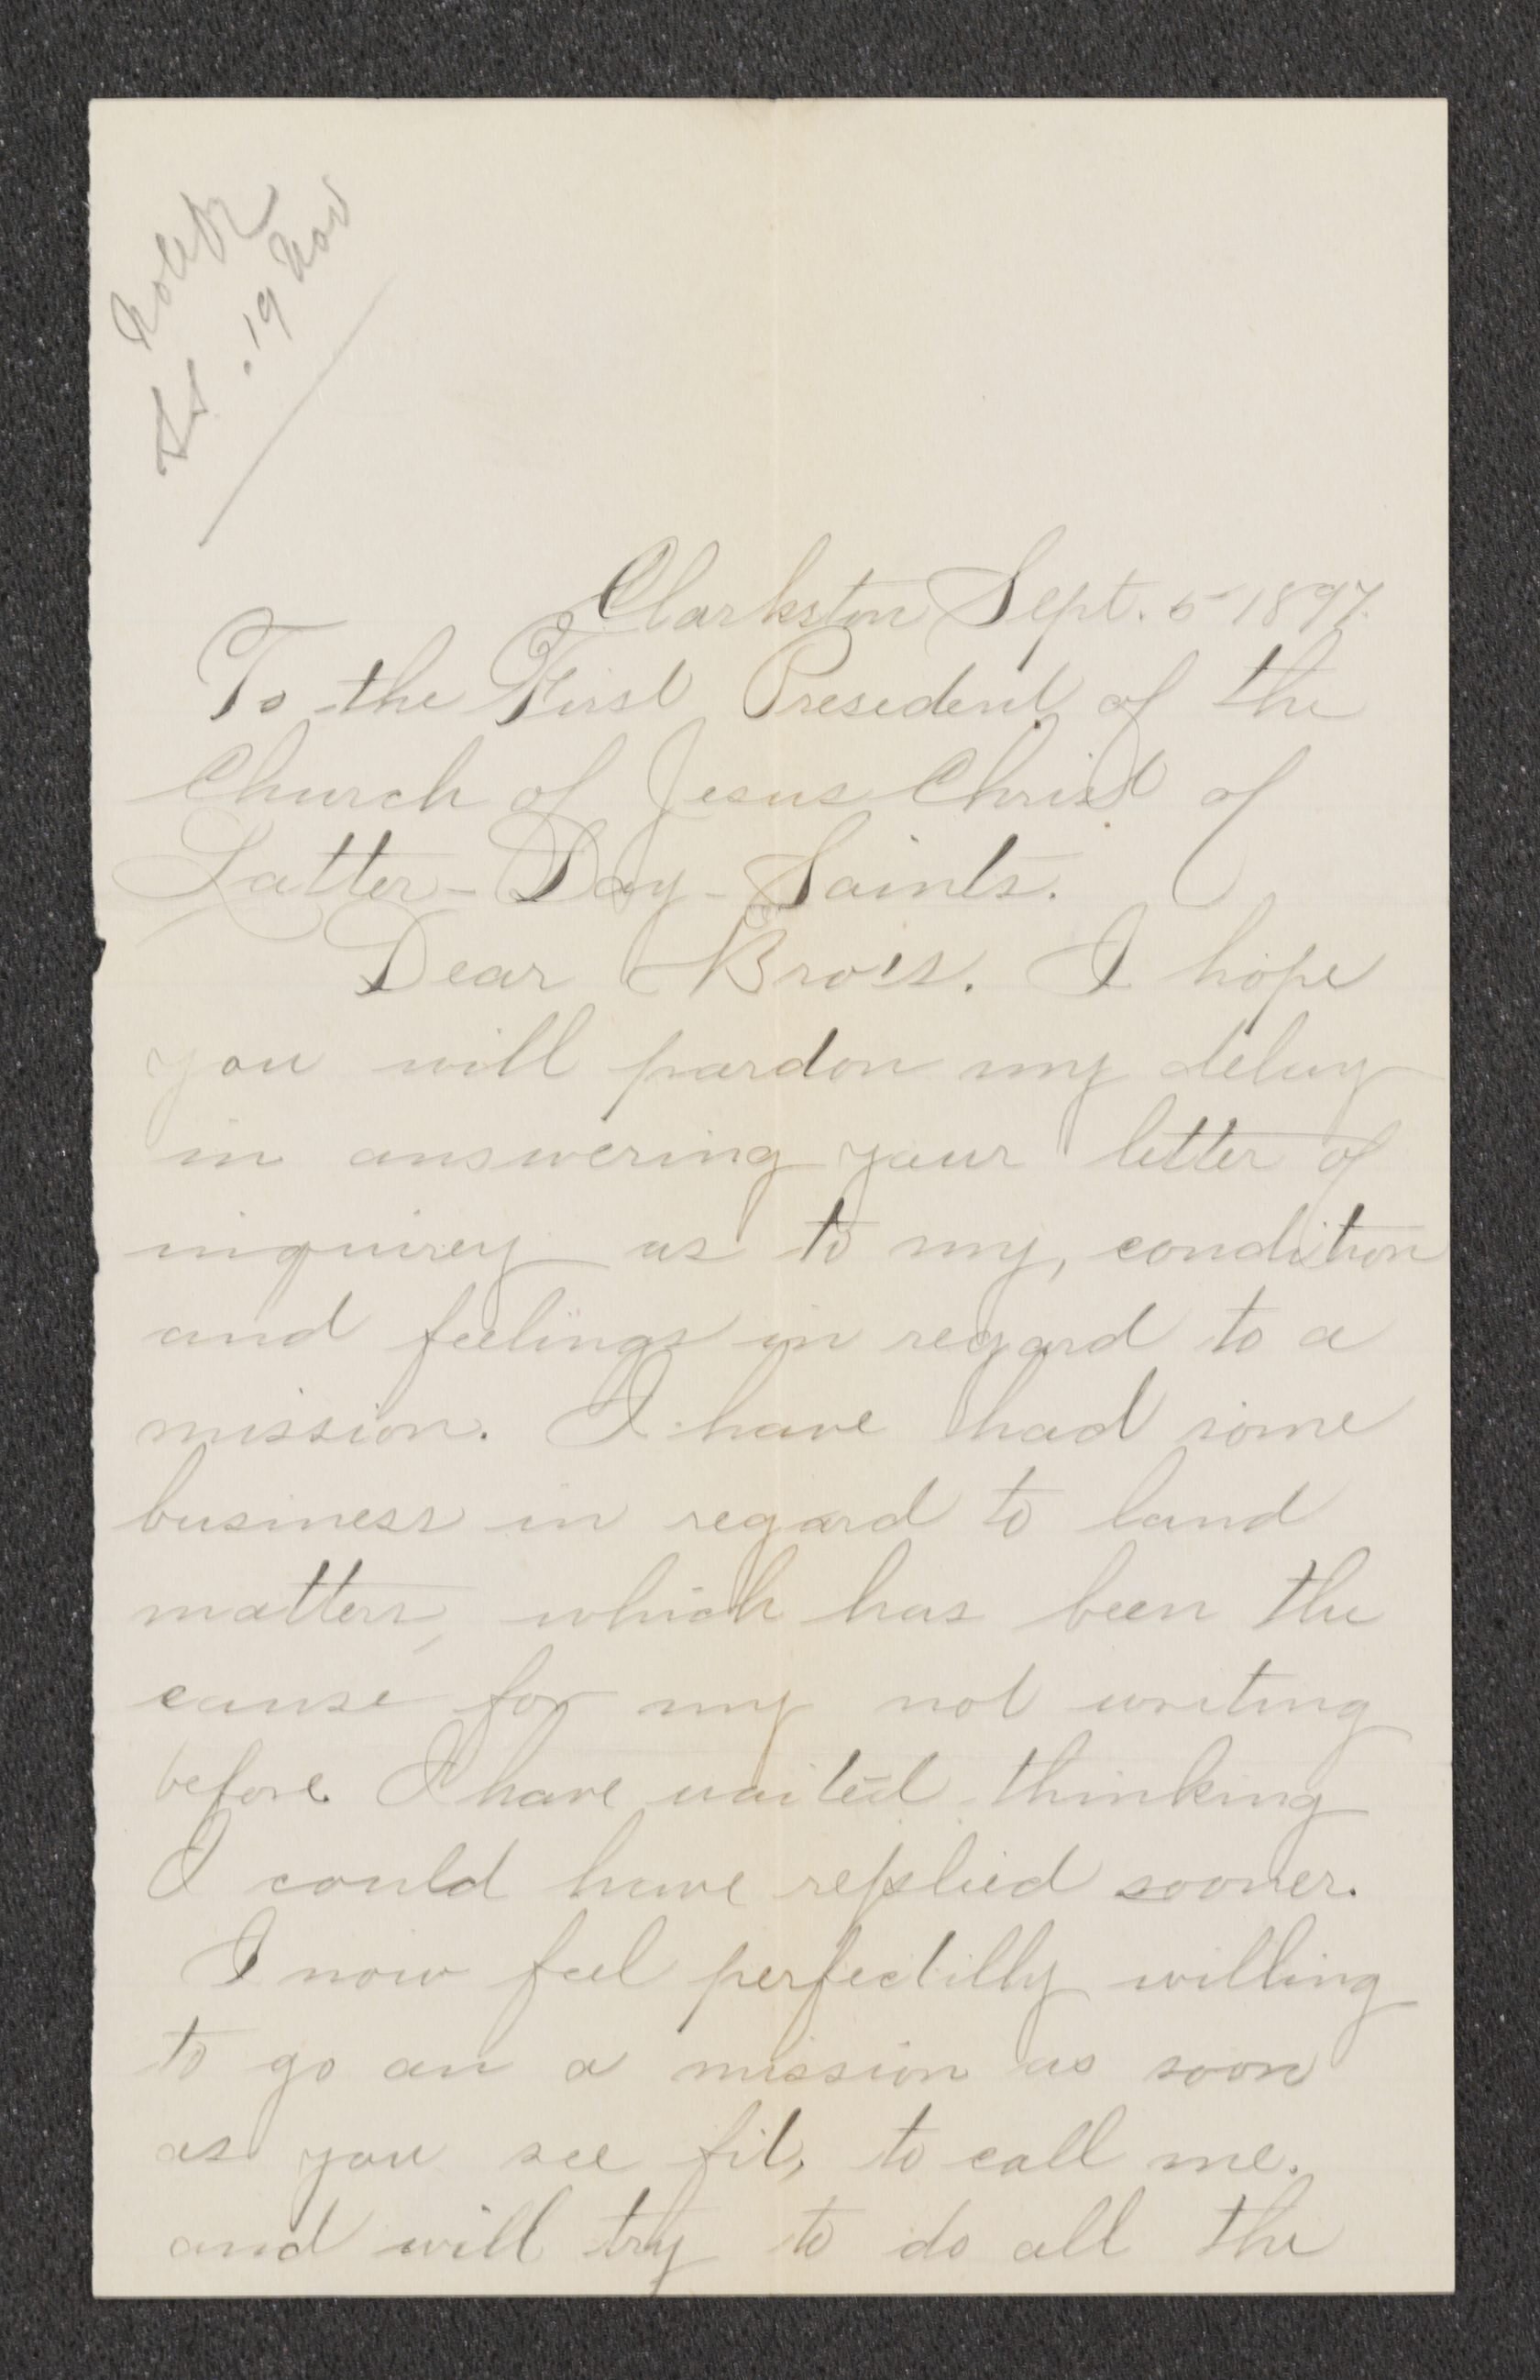 19 Nov
Clarkston Sept. 5 1897.
To the First Presedent of the
Church of Jesus Christ of
Latter-Day-Saints.
Dear Bro's. I hope
you will pardon my delay
in answering your letter of
inquirey as to my, condition
and feelings in regard to a
mission. I have had some
business in regard to land
matters, which has been the
cause for my not writing
before. I have waited thinking
I could have replied sooner.
I now feel perfectilly willing
to go an a mission as soon
as you see fit, to call me.
and will try to do all the